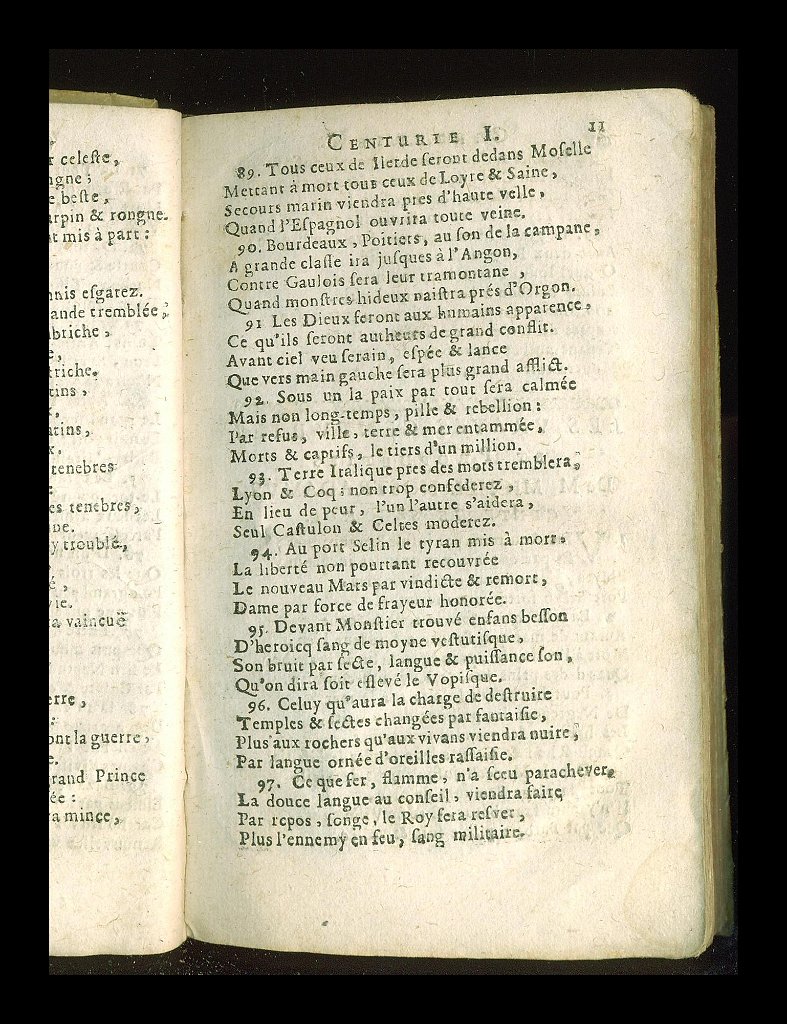 r celeſte,
ngne ;
e beſte,
arpin & rongne.
t mis à part :
nnis eſgarez.
ande tremblée,
abriche,
e,
triche.
tins,
atins,
x,
tenebres
es tenebres,
ne.
y troublé,
vie.
ra vaincuë
erre,
ont la guerre,
e.
rand Prince
ée :
ra mince,
CENTURIE I. 11
89. Tous ceux de Ilerde ſeront dedans Moſelle
Mettant à mort tous ceux de Loyre & Saine,
Secours marin viendra pres d'haute velle,
Quand l'Eſpagnol ouvrira toute veine.
90. Bourdeaux, Poitiers, au ſon de la campane,
A grande claſſe ira juſques à l'Angon,
Contre Gaulois ſera leur tramontane ,
Quand monſtres hideux naiſtra prés d'Orgon.
91 Les Dieux feront aux humains apparence,
Ce qu'ils ſeront autheurs de grand conflit.
Avant ciel veu ſerain, eſpée & lance
Que vers main gauche ſera plus grand afflict.
92. Sous un la paix par tout ſera calmée
Mais non long-temps, pille & rebellion :
Par refus, ville, terre & mer entammée,
Morts & captifs, le tiers d'un million.
93. Terre Italique pres des mots tremblera,
Lyon & Coq : non trop confederez ,
En lieu de peur, l'un l'autre s'aidera,
Seul Caſtulon & Celtes moderez.
94. Au port Selin le tyran mis à mort,
La liberté non pourtant recouvrée
Le nouveau Mars par vindicte & remort,
Dame par force de frayeur honorée.
95. Devant Monſtier trouvé enfans beſſon
D'heroicq ſang de moyne veſtutiſque,
Son bruit par ſecte, langue & puiſſance ſon,
Qu'on dira ſoit eſlevé le Vopiſque.
96. Celuy qu'aura la charge de deſtruire
Temples & ſectes changées par fantaiſie,
Plus aux rochers qu'aux vivans viendra nuire,
Par langue ornée d'oreilles raſſaiſie.
97. Ce que fer, flamme, n'a ſceu parachever,
La douce langue au conſeil, viendra faire
Par repos, ſonge, le Roy ſera reſver,
Plus l'ennemy en feu, ſang militaire.